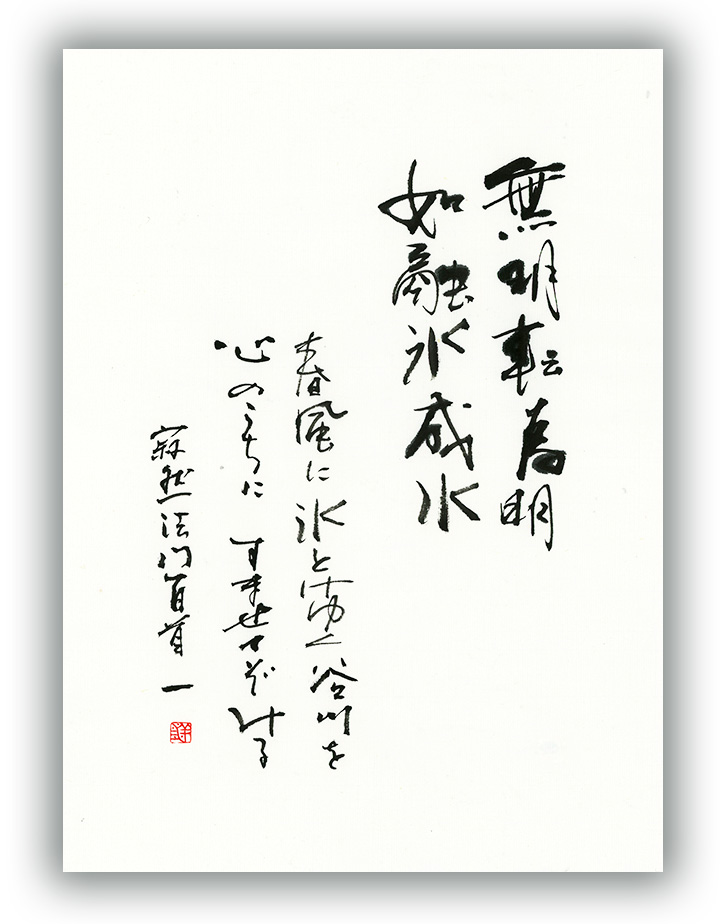 無明転為明
如融氷成水
春風に氷とけゆく谷川を
心のうちに すませてぞみる
寂然法門百首 一